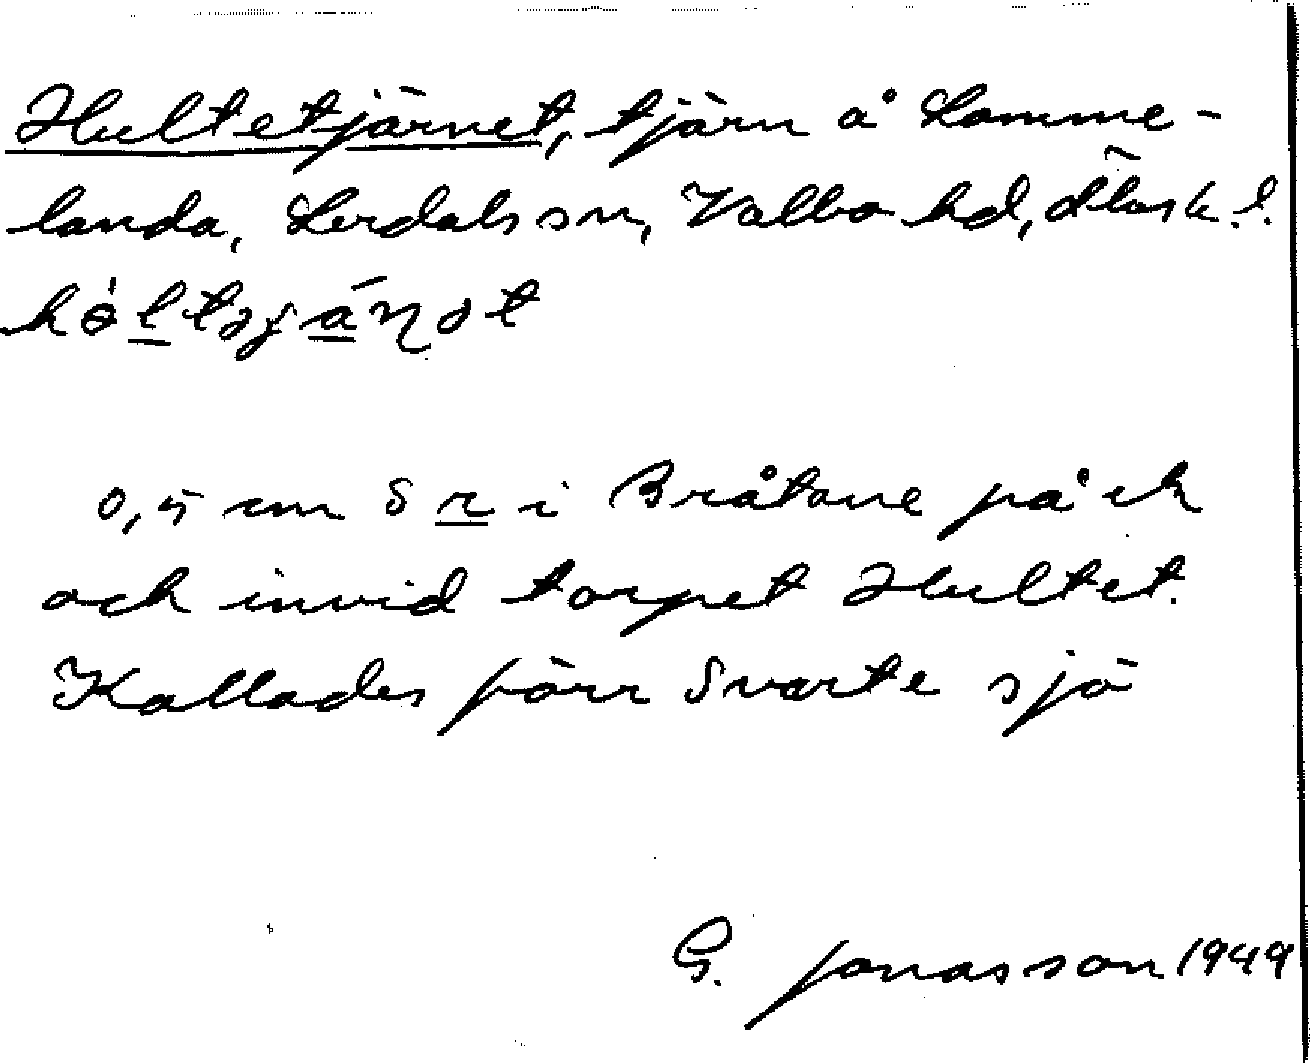 Hultetjärnet, tjärn å Lomme-
landa, Lerdals sn, Valbo hd, Älvsb. l.
0,5 cm S r i Bråtane på ek
och invid torpet Hultet.
Kallades förr Svarte sjö
G. Jonasson 1949